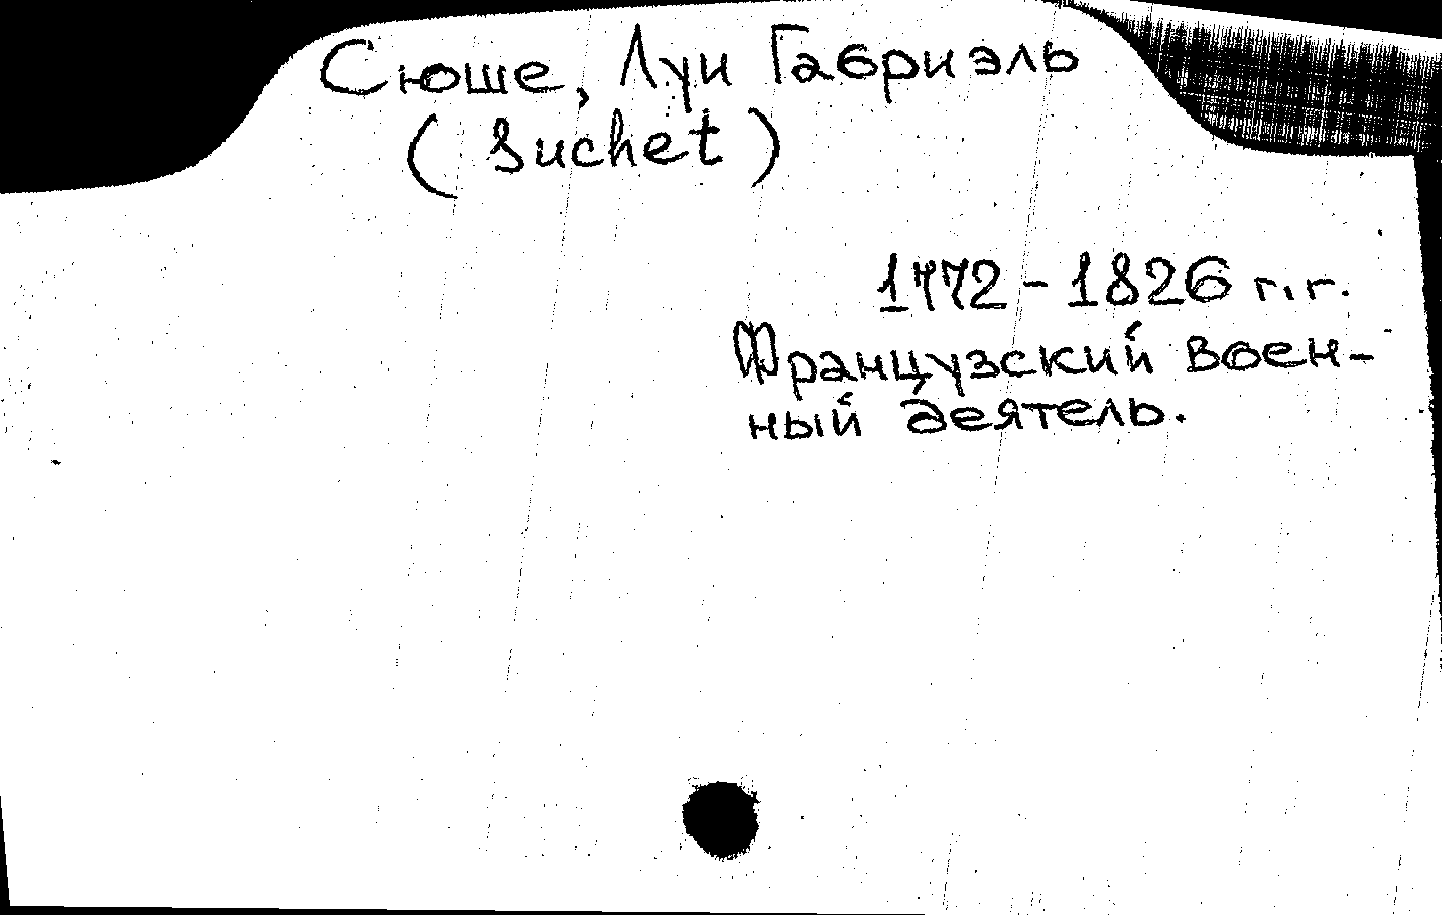 Сюше, Луи Габриэль
(Suchet)
1772-1826 г.г.
Французский воен-
ный деятель.